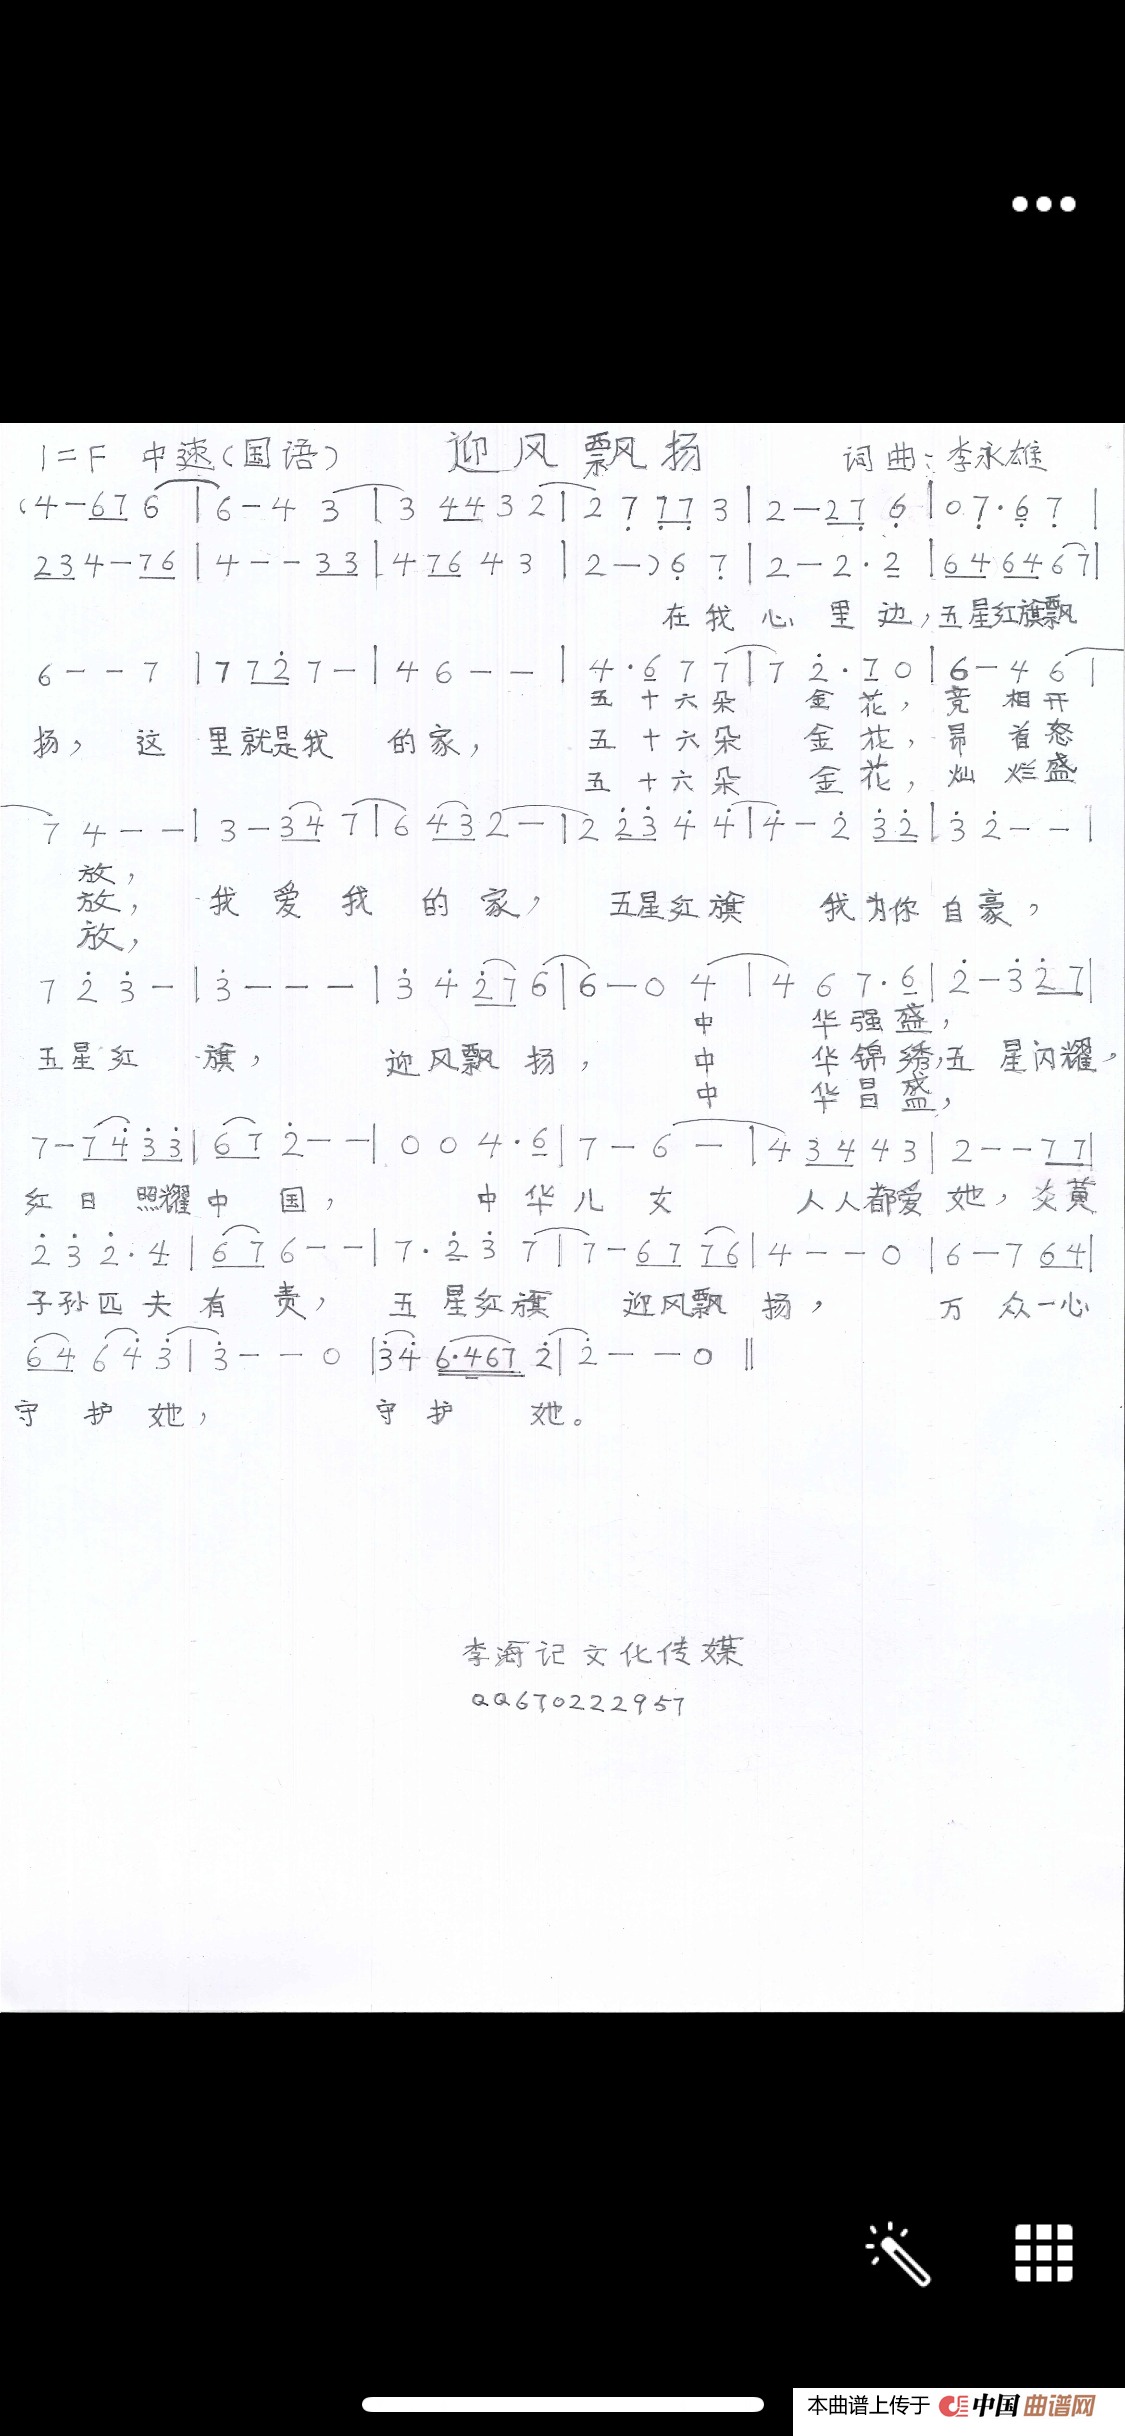 1=F 中速(国语) 迎风飘扬 词曲:李永雄
(4-67 6 | 6-4 3 | 3 44 3 2 | 2 7 77 3 | 2-27 6 | 0 7·6 7 |
234-76 | 4--33 | 4 76 4 3 | 2-)6 7 | 2-2·2 | 64 64 6 7 |
在我心里边,五星红旗飘
6--7 | 7 72 7- | 4 6-- | 4·6 7 7 | 7 2·7 0 | 6-4 6 |
五十六朵 金花,竞相开
扬,这里就是我的家, 五十六朵 金花,昂首怒
五十六朵 金花,灿烂盛
7 4-- | 3-34 7 | 6 43 2- | 2 23 4 4 | 4-2 32 | 3 2-- |
放,
放,我爱我的家,五星红旗 我为你自豪,
放,
7 2 3- | 3--- | 3 4 27 6 | 6-0 4 | 4 6 7·6 | 2-3 27 |
中 华强盛,
五星红旗, 迎风飘扬, 中 华锦绣,五星闪耀,
中 华昌盛,
7-74 33 | 67 2-- | 0 0 4·6 | 7-6- | 4 34 4 3 | 2--77 |
红日照耀中国, 中华儿女 人人都爱她,炎黄
2 3 2·4 | 67 6-- | 7·2 3 7 | 7-67 76 | 4--0 | 6-7 64 |
子孙匹夫有责, 五星红旗 迎风飘扬, 万众一心
64 6 4 3 | 3--0 | 34 6·467 2 | 2--0 ‖
守护她, 守护她。
李海记文化传媒
QQ670222957
本曲谱上传于 中国曲谱网